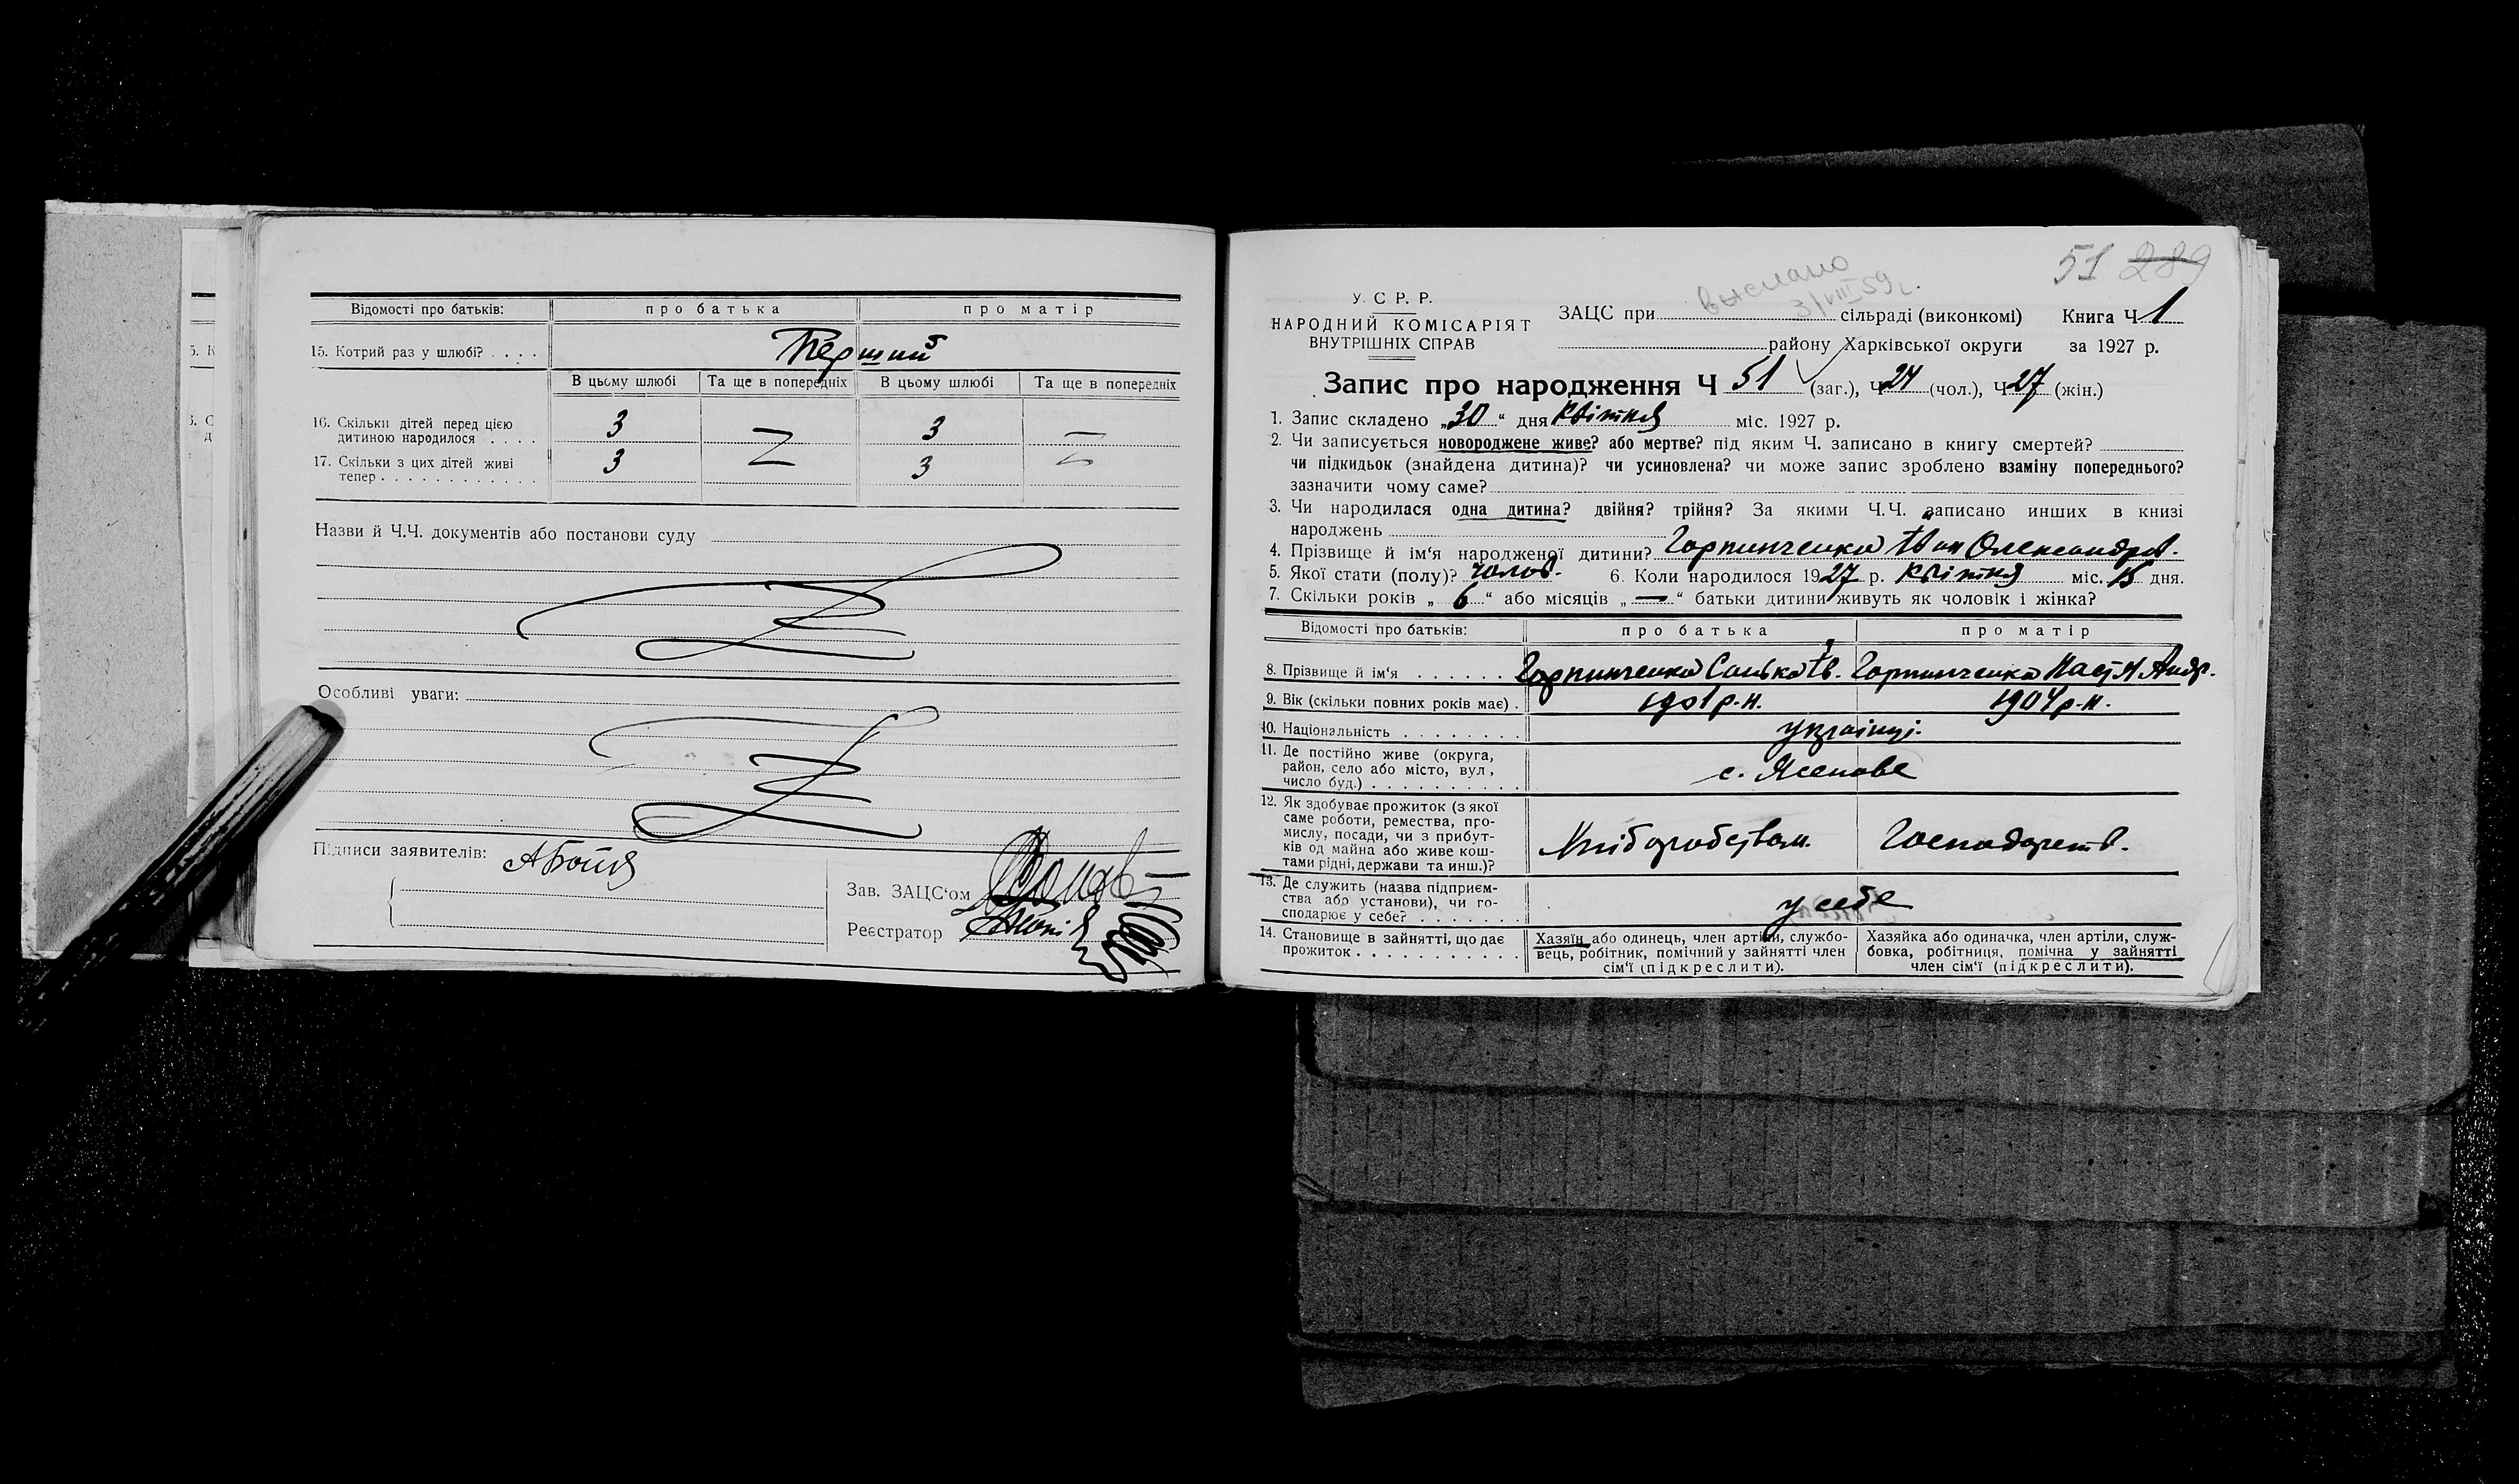 Відомості про батьків: про батька про матір
15. Котрий раз у шлюбі? . . . . Перший
В цьому шлюбі Та ще в попередніх В цьому шлюбі Та ще в попередніх
16. Скільки дітей перед цією
дитиною народилося . . . . 3 — 3 —
17. Скільки з цих дітей живі
тепер . . . . . . . . . . . . 3 — 3 —
Назви й Ч.Ч. документів або постанови суду
Особливі уваги:
Підписи заявителів:
Зав. ЗАЦС‘ом
Реєстратор
51 289
выслано
3/VIII 59 г.
У. С. Р. Р.
НАРОДНИЙ КОМІСАРІЯТ
ВНУТРІШНІХ СПРАВ
ЗАЦС при сільраді (виконкомі) Книга Ч 1
району Харківської округи за 1927 р.
Запис про народження Ч 51 (заг.), Ч 24 (чол.), Ч 27 (жін.)
1. Запис складено „30“ дня квітня міс. 1927 р.
2. Чи записується новороджене живе? або мертве? під яким Ч. записано в книгу смертей?
чи підкидьок (знайдена дитина)? чи усиновлена? чи може запис зроблено взаміну попереднього?
зазначити чому саме?
3. Чи народилася одна дитина? двійня? трійня? За якими Ч.Ч. записано инших в книзі
народжень
4. Прізвище й ім‘я народженої дитини? Горпинченко Іван Олександров.
5. Якої стати (полу)? чолов. 6. Коли народилося 1927 р. квітня міс. 15 дня.
7. Скільки років „6“ або місяців „—“ батьки дитини живуть як чоловік і жінка?
Відомості про батьків: про батька про матір
8. Прізвище й ім‘я . . . . . . Горпинченко Санько Ів. Горпинченко Настя Андр.
9. Вік (скільки повних років має) . 1901 р.н. 1904 р.н.
10. Національність . . . . . . . . українці.
11. Де постійно живе (округа,
район, село або місто, вул,
число буд.) . . . . . . . . . . с. Ясенове
12. Як здобуває прожиток (з якої
саме роботи, ремества, про-
мислу, посади, чи з прибут-
ків од майна або живе кош-
тами рідні, держави та инш.)? Хліборобством. Господарств.
13. Де служить (назва підприєм-
ства або установи), чи го-
сподарює у себе? . . . . . . . у себе
14. Становище в зайнятті, що дає
прожиток . . . . . . . . . . . .
Хазяїн або одинець, член артіли, службо-
вець, робітник, помічний у зайнятті член
сім‘ї (підкреслити).
Хазяйка або одиначка, член артіли, служ-
бовка, робітниця, помічна у зайнятті
член сім‘ї (підкреслити).